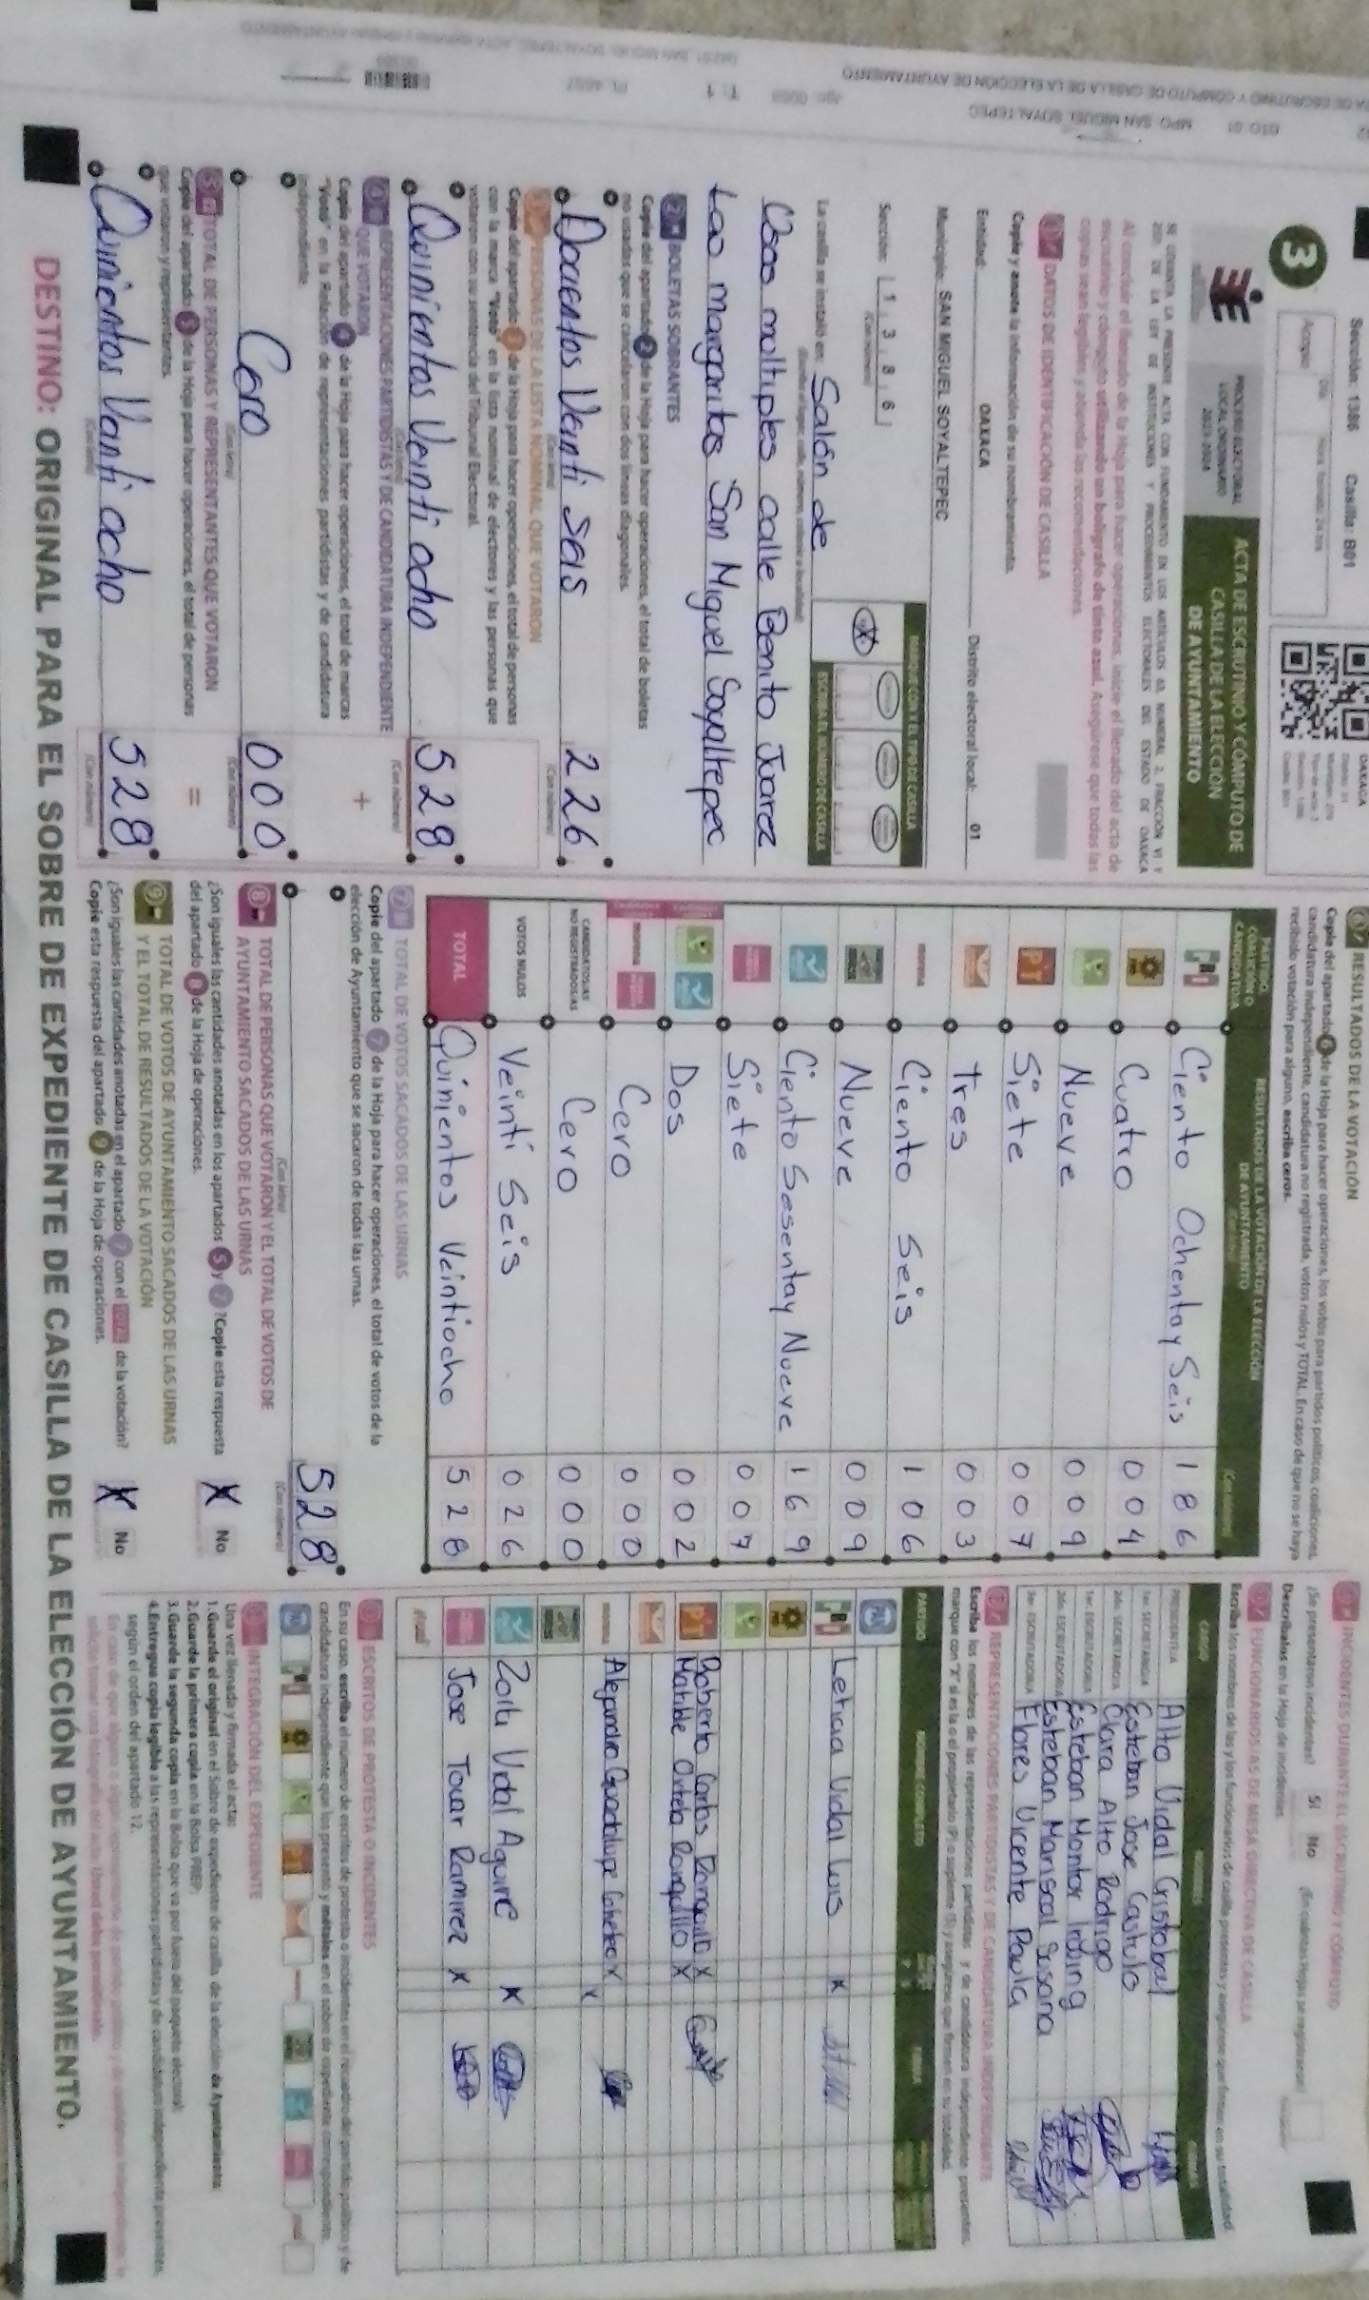 Sección: 1386 Casilla: B01
3
PROCESO ELECTORAL
LOCAL ORDINARIO
2023-2024
ACTA DE ESCRUTINIO Y CÓMPUTO DE
CASILLA DE LA ELECCIÓN
DE AYUNTAMIENTO
Al concluir el llenado de la Hoja para hacer operaciones, inicie el llenado del acta de
escrutinio y cómputo utilizando un bolígrafo de tinta azul. Asegúrese que todas las
copias sean legibles y atienda las recomendaciones.
DATOS DE IDENTIFICACIÓN DE CASILLA
Copie y anote la información de su nombramiento.
Entidad: OAXACA Distrito electoral local: 01
Municipio: SAN MIGUEL SOYALTEPEC
Sección: 1 3 8 6
(Con número)
MARQUE CON X EL TIPO DE CASILLA
ESCRIBA EL NÚMERO DE CASILLA
La casilla se instaló en: Salón de
Usos moltiples calle Benito Juarez
Las margaritas San Miguel Soyaltepec
2 BOLETAS SOBRANTES
Copie del apartado 2 de la Hoja para hacer operaciones, el total de boletas
no usadas que se cancelaron con dos líneas diagonales.
Docientos Veinti seis 226
(Con letra) (Con número)
PERSONAS DE LA LISTA NOMINAL QUE VOTARON
Copie del apartado 3 de la Hoja para hacer operaciones, el total de personas
con la marca "Votó" en la lista nominal de electores y las personas que
votaron con su sentencia del Tribunal Electoral.
Quinientos Veinti ocho 528
(Con letra) (Con número)
REPRESENTACIONES PARTIDISTAS Y DE CANDIDATURA INDEPENDIENTE
QUE VOTARON
+
Copie del apartado 4 de la Hoja para hacer operaciones, el total de marcas
"Votó" en la Relación de representaciones partidistas y de candidatura
independiente.
Cero 000
(Con letra) (Con número)
5 TOTAL DE PERSONAS Y REPRESENTANTES QUE VOTARON
=
Copie del apartado 5 de la Hoja para hacer operaciones, el total de personas
que votaron y representantes.
Quinientos Vanti ocho 528
(Con letra) (Con número)
RESULTADOS DE LA VOTACIÓN
Copie del apartado 6 de la Hoja para hacer operaciones, los votos para partidos políticos, coaliciones,
candidatura independiente, candidatura no registrada, votos nulos y TOTAL. En caso de que no se haya
recibido votación para alguno, escriba ceros.
PARTIDO, COALICIÓN O CANDIDATO/A
RESULTADOS DE LA VOTACIÓN DE LA ELECCIÓN
DE AYUNTAMIENTO
Ciento Ochentay Seis 186
Cuatro 004
Nueve 009
Siete 007
Tres 003
morena Ciento Seis 106
Nueve 009
Ciento Sesentay Nueve 169
Siete 007
Dos 002
morena Cero 000
CANDIDATOS/AS NO REGISTRADOS/AS Cero 000
VOTOS NULOS Veinti Seis 026
TOTAL Quinientos Veintiocho 528
7 TOTAL DE VOTOS SACADOS DE LAS URNAS
Copie del apartado 7 de la Hoja para hacer operaciones, el total de votos de la
elección de Ayuntamiento que se sacaron de todas las urnas.
528
(Con letra) (Con número)
8 TOTAL DE PERSONAS QUE VOTARON Y EL TOTAL DE VOTOS DE
AYUNTAMIENTO SACADOS DE LAS URNAS
¿Son iguales las cantidades anotadas en los apartados 5 y 7? Copie esta respuesta
del apartado 8 de la Hoja de operaciones.
X No
9 TOTAL DE VOTOS DE AYUNTAMIENTO SACADOS DE LAS URNAS
Y EL TOTAL DE RESULTADOS DE LA VOTACIÓN
¿Son iguales las cantidades anotadas en el apartado 7 con el TOTAL de la votación?
Copie esta respuesta del apartado 9 de la Hoja de operaciones.
X No
INCIDENTES DURANTE EL ESCRUTINIO Y CÓMPUTO
¿Se presentaron incidentes? Sí No
Descríbalos en la Hoja de incidentes.
FUNCIONARIOS/AS DE MESA DIRECTIVA DE CASILLA
CARGO
Alto Vidal Cristobal
Esteban Jose Castulo
Clara Alto Rodrigo
Esteban Montor Irving
Esteban Mariscal Susana
Flores Vicente Paula
REPRESENTACIONES PARTIDISTAS Y DE CANDIDATURA INDEPENDIENTE
PARTIDO NOMBRE COMPLETO
PAN
Leticia Vidal Luis X
PT Matilde Ortela Ronquillo X
morena
Zoila Vidal Aguirre X
Jose Tovar Ramirez X
ESCRITOS DE PROTESTA O INCIDENTES
INTEGRACIÓN DEL EXPEDIENTE
Una vez llenada y firmada el acta:
1. Guarde el original en el Sobre de expediente de casilla de la elección de Ayuntamiento.
2. Guarde la primera copia en la Bolsa PREP.
3. Guarde la segunda copia en la Bolsa que va por fuera del paquete electoral.
4. Entregue copia legible a las representaciones partidistas y de candidatura independiente presentes,
según el orden del apartado 12.
DESTINO: ORIGINAL PARA EL SOBRE DE EXPEDIENTE DE CASILLA DE LA ELECCIÓN DE AYUNTAMIENTO.